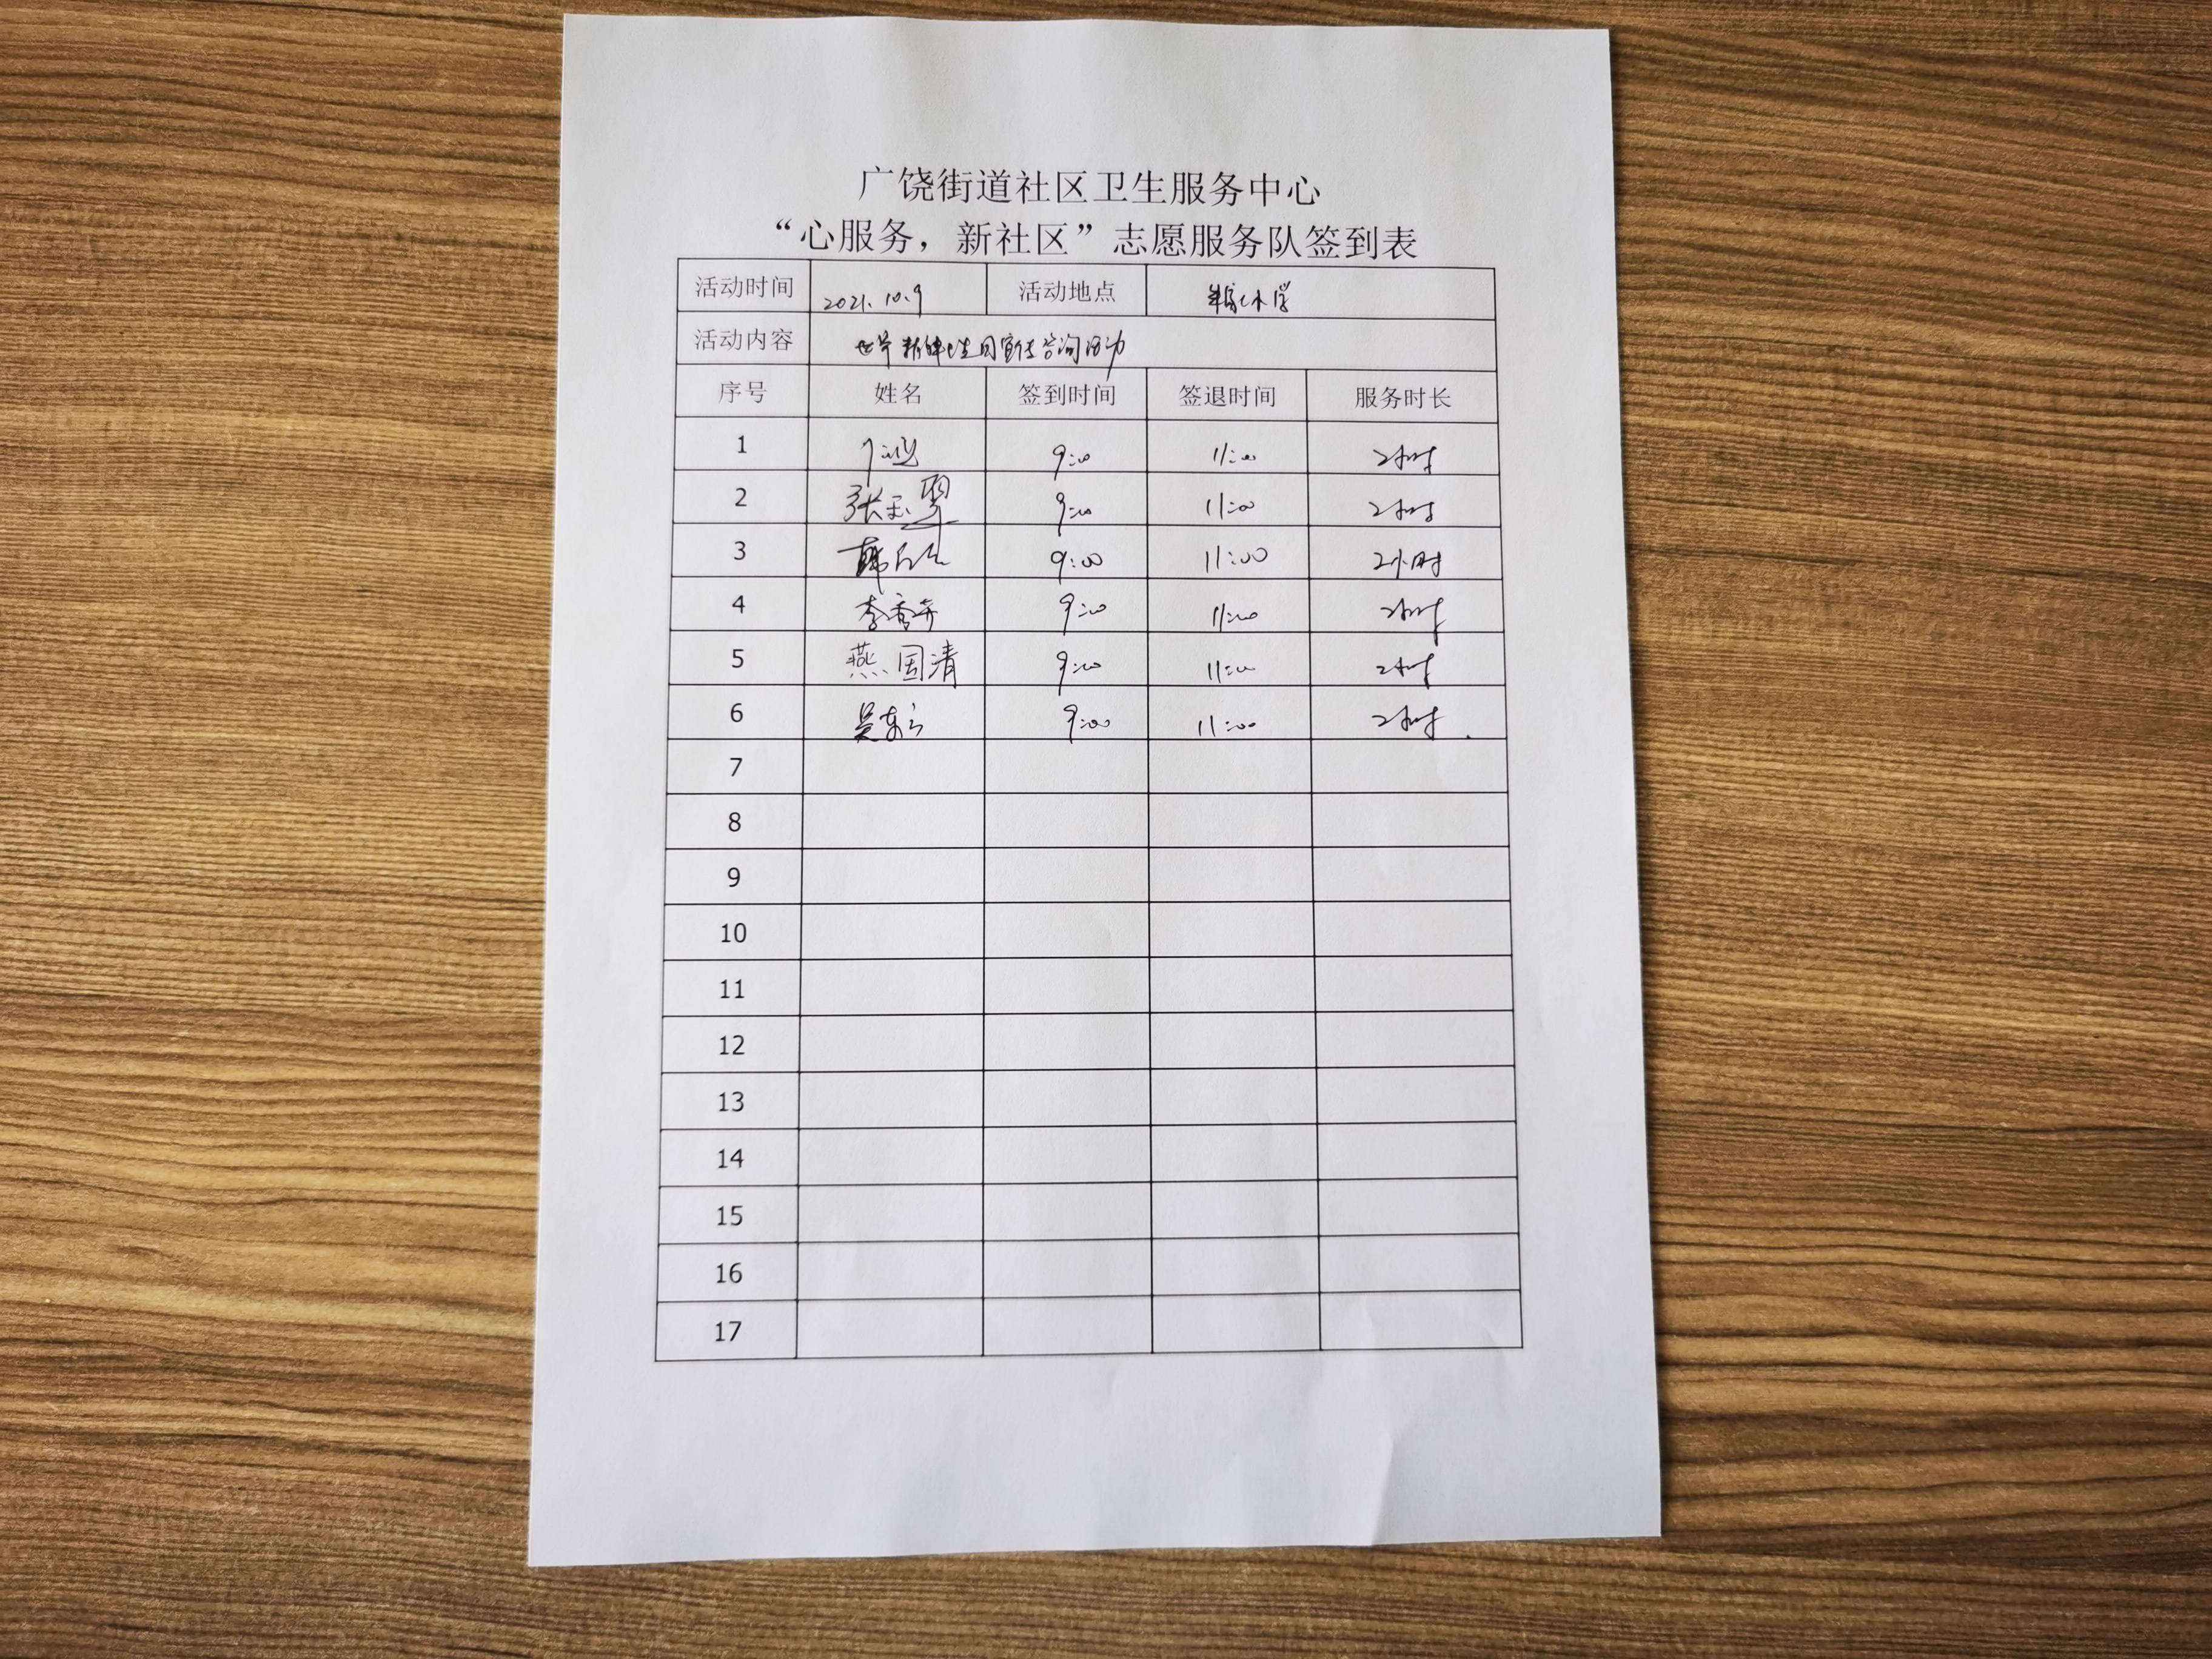 广饶街道社区卫生服务中心
“心服务，新社区”志愿服务队签到表
活动时间 2021.10.9 活动地点 小学
活动内容 世界精神卫生日宣传咨询活动
序号 姓名 签到时间 签退时间 服务时长
1 9:00 11:00 2小时
2 张玉翠 9:00 11:00 2小时
3 韩 9:00 11:00 2小时
4 李秀芹 9:00 11:00 2小时
5 燕国清 9:00 11:00 2小时
6 吴东 9:00 11:00 2小时
7
8
9
10
11
12
13
14
15
16
17